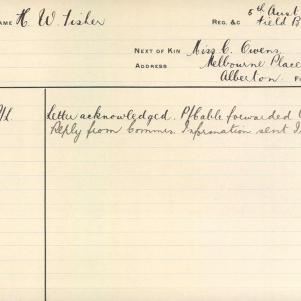 NAME H. W. Fisher
REG. &C 5th Aust
Field B
NEXT OF KIN Miss C. Owens
ADDRESS Melbourne Place
Alberton.
Letter acknowledged. P/Cable forwarded
Reply from Commrs. Information sent